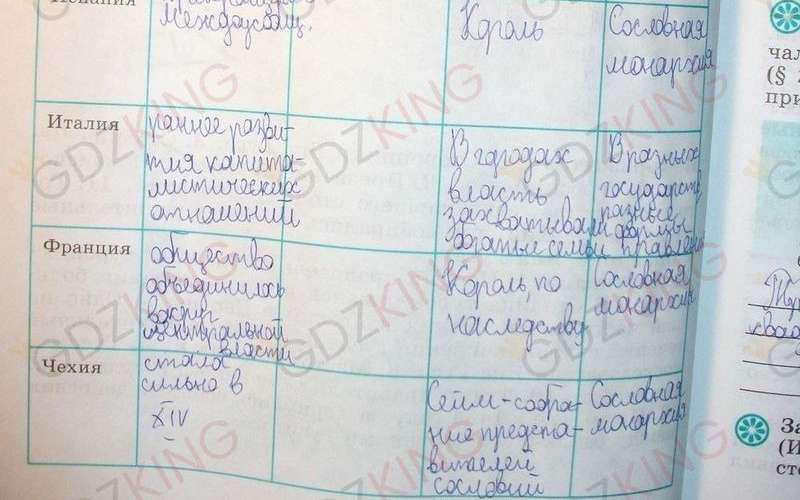 Испания
междоусобиц.
Король
Сословная
монархия
Италия
раннее разви-
тия капита-
листических
отношений
В городах
власть
захватывали
богатые семьи
В разных
государств
разные
формы
правлени
Франция
общество
объединилось
вокруг
центральной
власти
Король, по
наследству
Сословная
монархия
Чехия
стала
сильно в
XIV
Сейм - собра-
ние предста-
вителей
сословий
Сословная
монархия
чал
(§ 2
при
За
(И
сте
GDZKING